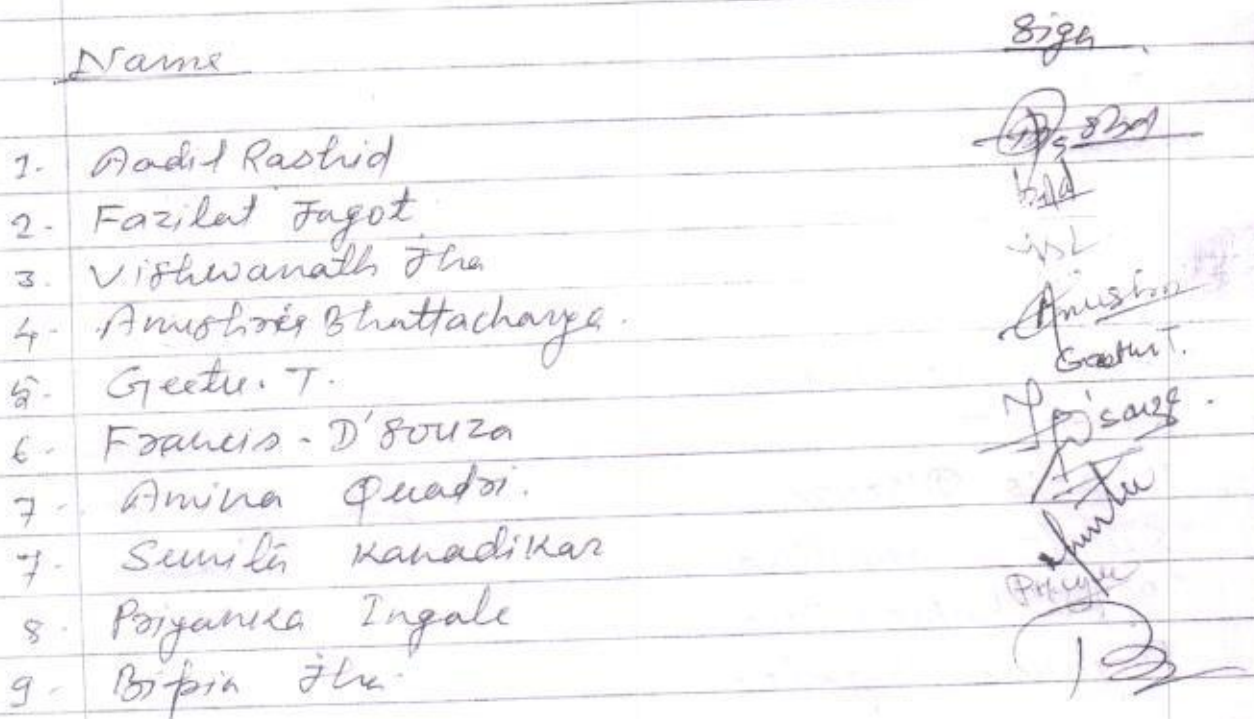 Name Sign
1. Aadil Rashid
2. Fazilat Jagot
3. Vishwanath Jha
4. Anushree Bhattacharya. Anushree
5. Geetu. T. Geetu T.
6. Francis - D'souza D'souza.
7. Amina Quadri.
7. Sunita Kanadikar
8. Priyanka Ingale
9. Bipin Jha